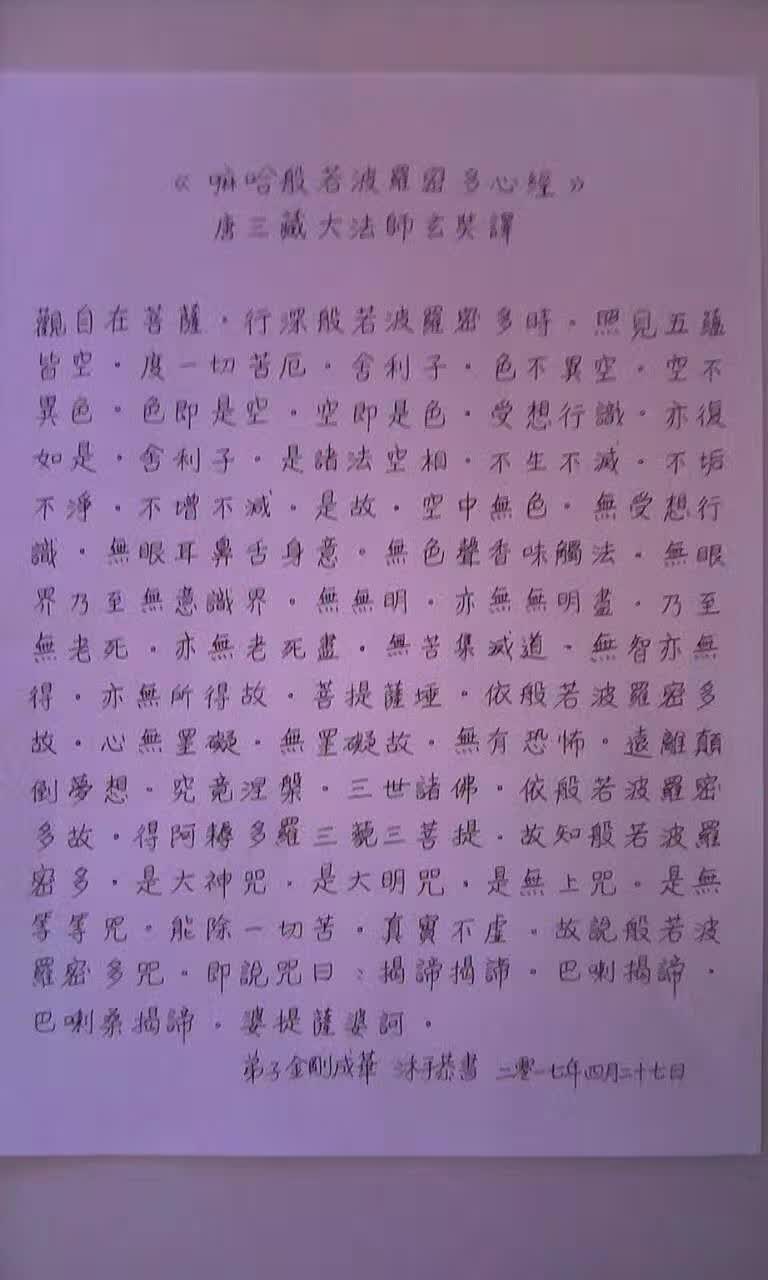 《嘛哈般若波羅密多心經》
唐三藏大法師玄奘譯
觀自在菩薩。行深般若波羅密多時。照見五蘊
皆空。度一切苦厄。舍利子。色不異空。空不
異色。色即是空。空即是色。受想行識。亦復
如是。舍利子。是諸法空相。不生不滅。不垢
不淨。不增不減。是故。空中無色。無受想行
識。無眼耳鼻舌身意。無色聲香味觸法。無眼
界乃至無意識界。無無明。亦無無明盡。乃至
無老死。亦無老死盡。無苦集滅道。無智亦無
得。亦無所得故。菩提薩埵。依般若波羅密多
故。心無罣礙。無罣礙故。無有恐怖。遠離顛
倒夢想。究竟涅槃。三世諸佛。依般若波羅密
多故。得阿耨多羅三藐三菩提。故知般若波羅
密多。是大神咒。是大明咒。是無上咒。是無
等等咒。能除一切苦。真實不虛。故說般若波
羅密多咒。即說咒曰：揭諦揭諦。巴喇揭諦。
巴喇桑揭諦。婆提薩婆訶。
弟子金剛成華 沐手恭書 二零一七年四月二十七日